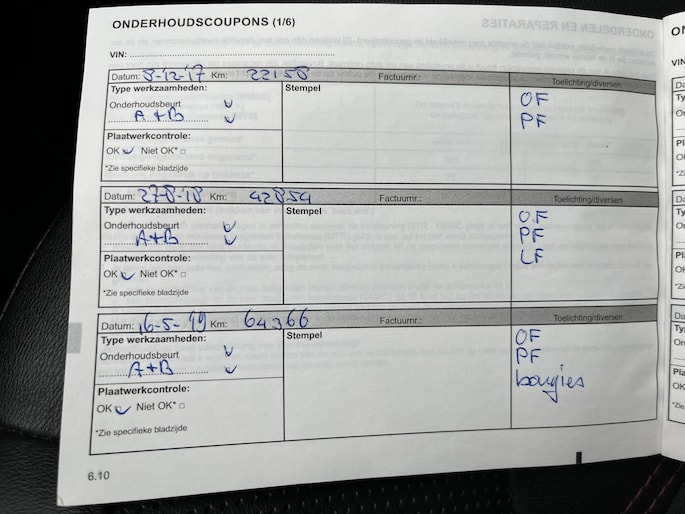 ONDERHOUDSCOUPONS (1/6)
VIN:
Datum: 8-12-'17 Km: 22158 Factuurnr.: Toelichting/diversen
Type werkzaamheden: Stempel OF
Onderhoudsbeurt
A+B PF
Plaatwerkcontrole:
OK Niet OK*
*Zie specifieke bladzijde
Datum: 27-8-'18 Km: 42854 Factuurnr.: Toelichting/diversen
Type werkzaamheden: Stempel OF
Onderhoudsbeurt PF
A+B LF
Plaatwerkcontrole:
OK Niet OK*
*Zie specifieke bladzijde
Datum: 16-5-'19 Km: 64366 Factuurnr.: Toelichting/diversen
Type werkzaamheden: Stempel OF
Onderhoudsbeurt PF
A+B bougies
Plaatwerkcontrole:
OK Niet OK*
*Zie specifieke bladzijde
6.10